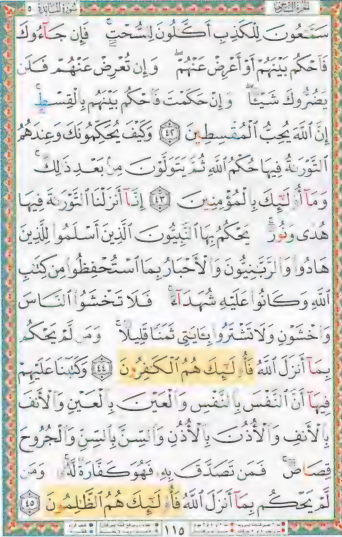 سُورَةُ المَائدة ٥
سَمَّٰعُونَ لِلْكَذِبِ أَكَّٰلُونَ لِلسُّحْتِ ۚ فَإِن جَآءُوكَ
فَٱحْكُم بَيْنَهُمْ أَوْ أَعْرِضْ عَنْهُمْ ۖ وَإِن تُعْرِضْ عَنْهُمْ فَلَن
يَضُرُّوكَ شَيْـًٔا ۖ وَإِنْ حَكَمْتَ فَٱحْكُم بَيْنَهُم بِٱلْقِسْطِ ۚ
إِنَّ ٱللَّهَ يُحِبُّ ٱلْمُقْسِطِينَ ﴿٤٢﴾ وَكَيْفَ يُحَكِّمُونَكَ وَعِندَهُمُ
ٱلتَّوْرَىٰةُ فِيهَا حُكْمُ ٱللَّهِ ثُمَّ يَتَوَلَّوْنَ مِنۢ بَعْدِ ذَٰلِكَ ۚ
وَمَآ أُو۟لَٰٓئِكَ بِٱلْمُؤْمِنِينَ ﴿٤٣﴾ إِنَّآ أَنزَلْنَا ٱلتَّوْرَىٰةَ فِيهَا
هُدًى وَنُورٌ ۚ يَحْكُمُ بِهَا ٱلنَّبِيُّونَ ٱلَّذِينَ أَسْلَمُوا۟ لِلَّذِينَ
هَادُوا۟ وَٱلرَّبَّٰنِيُّونَ وَٱلْأَحْبَارُ بِمَا ٱسْتُحْفِظُوا۟ مِن كِتَٰبِ
ٱللَّهِ وَكَانُوا۟ عَلَيْهِ شُهَدَآءَ ۚ فَلَا تَخْشَوُا۟ ٱلنَّاسَ
وَٱخْشَوْنِ وَلَا تَشْتَرُوا۟ بِـَٔايَٰتِى ثَمَنًا قَلِيلًا ۚ وَمَن لَّمْ يَحْكُم
بِمَآ أَنزَلَ ٱللَّهُ فَأُو۟لَٰٓئِكَ هُمُ ٱلْكَٰفِرُونَ ﴿٤٤﴾ وَكَتَبْنَا عَلَيْهِمْ
فِيهَآ أَنَّ ٱلنَّفْسَ بِٱلنَّفْسِ وَٱلْعَيْنَ بِٱلْعَيْنِ وَٱلْأَنفَ
بِٱلْأَنفِ وَٱلْأُذُنَ بِٱلْأُذُنِ وَٱلسِّنَّ بِٱلسِّنِّ وَٱلْجُرُوحَ
قِصَاصٌ ۚ فَمَن تَصَدَّقَ بِهِۦ فَهُوَ كَفَّارَةٌ لَّهُۥ ۚ وَمَن
لَّمْ يَحْكُم بِمَآ أَنزَلَ ٱللَّهُ فَأُو۟لَٰٓئِكَ هُمُ ٱلظَّٰلِمُونَ ﴿٤٥﴾
١١٥